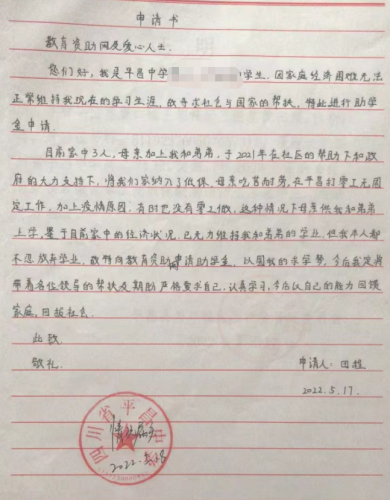 申请书
教育资助网及爱心人士:
您们好,我是平昌中学 学生,因家庭经济困难无法
正常维持我现在的学习生涯,故寻求社会与国家的帮扶,特此进行助学
金申请.
目前家中3人,母亲加上我和弟弟,于2021年在社区的帮助下和政
府的大力支持下,将我们家纳入了低保,母亲吃苦耐劳,在平昌打零工无固
定工作,加上疫情原因,有时也没有零工做,这种情况下母亲供我和弟弟
上学,鉴于目前家中的经济状况,已无力维持我和弟弟的学业,但我本人都
不忍放弃学业,故特向教育资助网申请助学金,以圆我的求学梦,今后我定
带着各位领导的帮扶及期助严格要求自己,认真学习,今后以自己的能力回馈
家庭,回报社会.
此致
敬礼. 申请人:田
2022.5.17.
四川省平昌中学
2022.5.